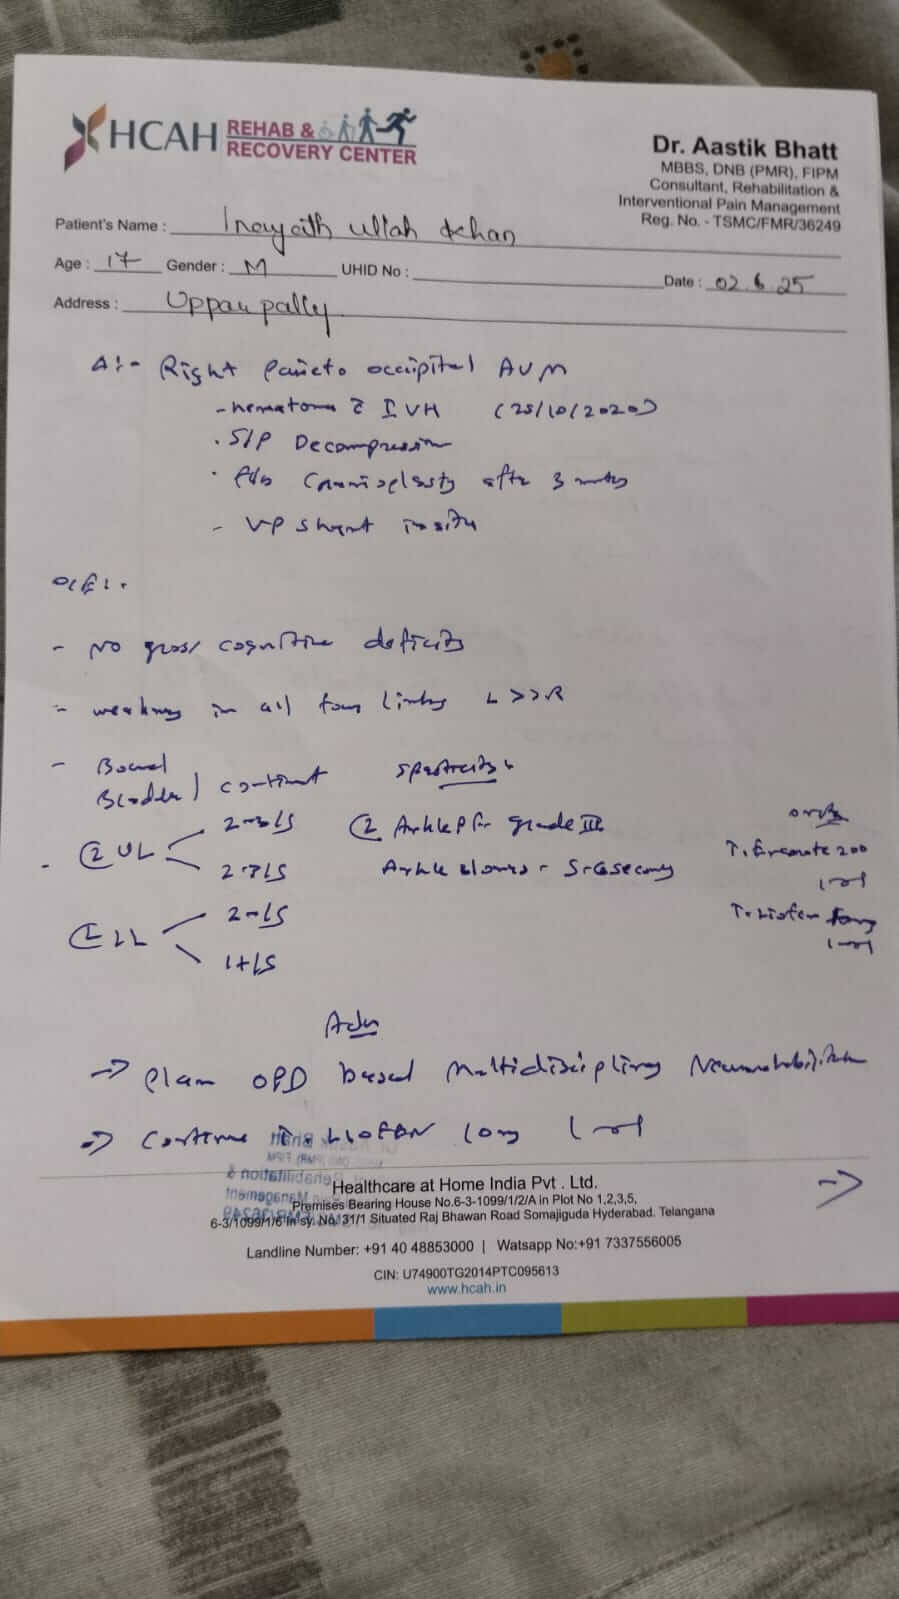 HCAH REHAB &
RECOVERY CENTER
Dr. Aastik Bhatt
MBBS, DNB (PMR), FIPM
Consultant, Rehabilitation &
Interventional Pain Management
Reg. No. - TSMC/FMR/36249
Patient's Name : Inayath Ullah Khan
Age : 17 Gender : M UHID No : Date : 02.6.25
Address : Upparpally
Δ:- Right Parieto occipital AVM
- hematoma c̄ IVH (25/10/2020)
. S/P Decompression
. F/b Cranioplasty after 3 months
- VP shunt insitu
O/E:-
- No gross cognitive deficits
- weakness in all four limbs L >> R
- Bowel
Bladder ) continent
Spasticity
- Ⓛ UL 2-3/5
2-3/5
Ⓛ LL 2-/5
1+/5
Ⓛ Ankle PF grade III
Ankle clonus - 5-6 seconds
on
T. 200
1-0-1
T. Liofen
1-0-1
Adv
→ Plan OPD based Multidisciplinary Neurorehabilitation
→ Continue T. LIOFEN 10mg 1-0-1
→
Rehabilitation &
Management
Healthcare at Home India Pvt . Ltd.
Premises Bearing House No.6-3-1099/1/2/A in Plot No 1,2,3,5,
6-3/1099/1/6 in sy. No. 31/1 Situated Raj Bhawan Road Somajiguda Hyderabad. Telangana
Landline Number: +91 40 48853000 | Watsapp No:+91 7337556005
CIN: U74900TG2014PTC095613
www.hcah.in